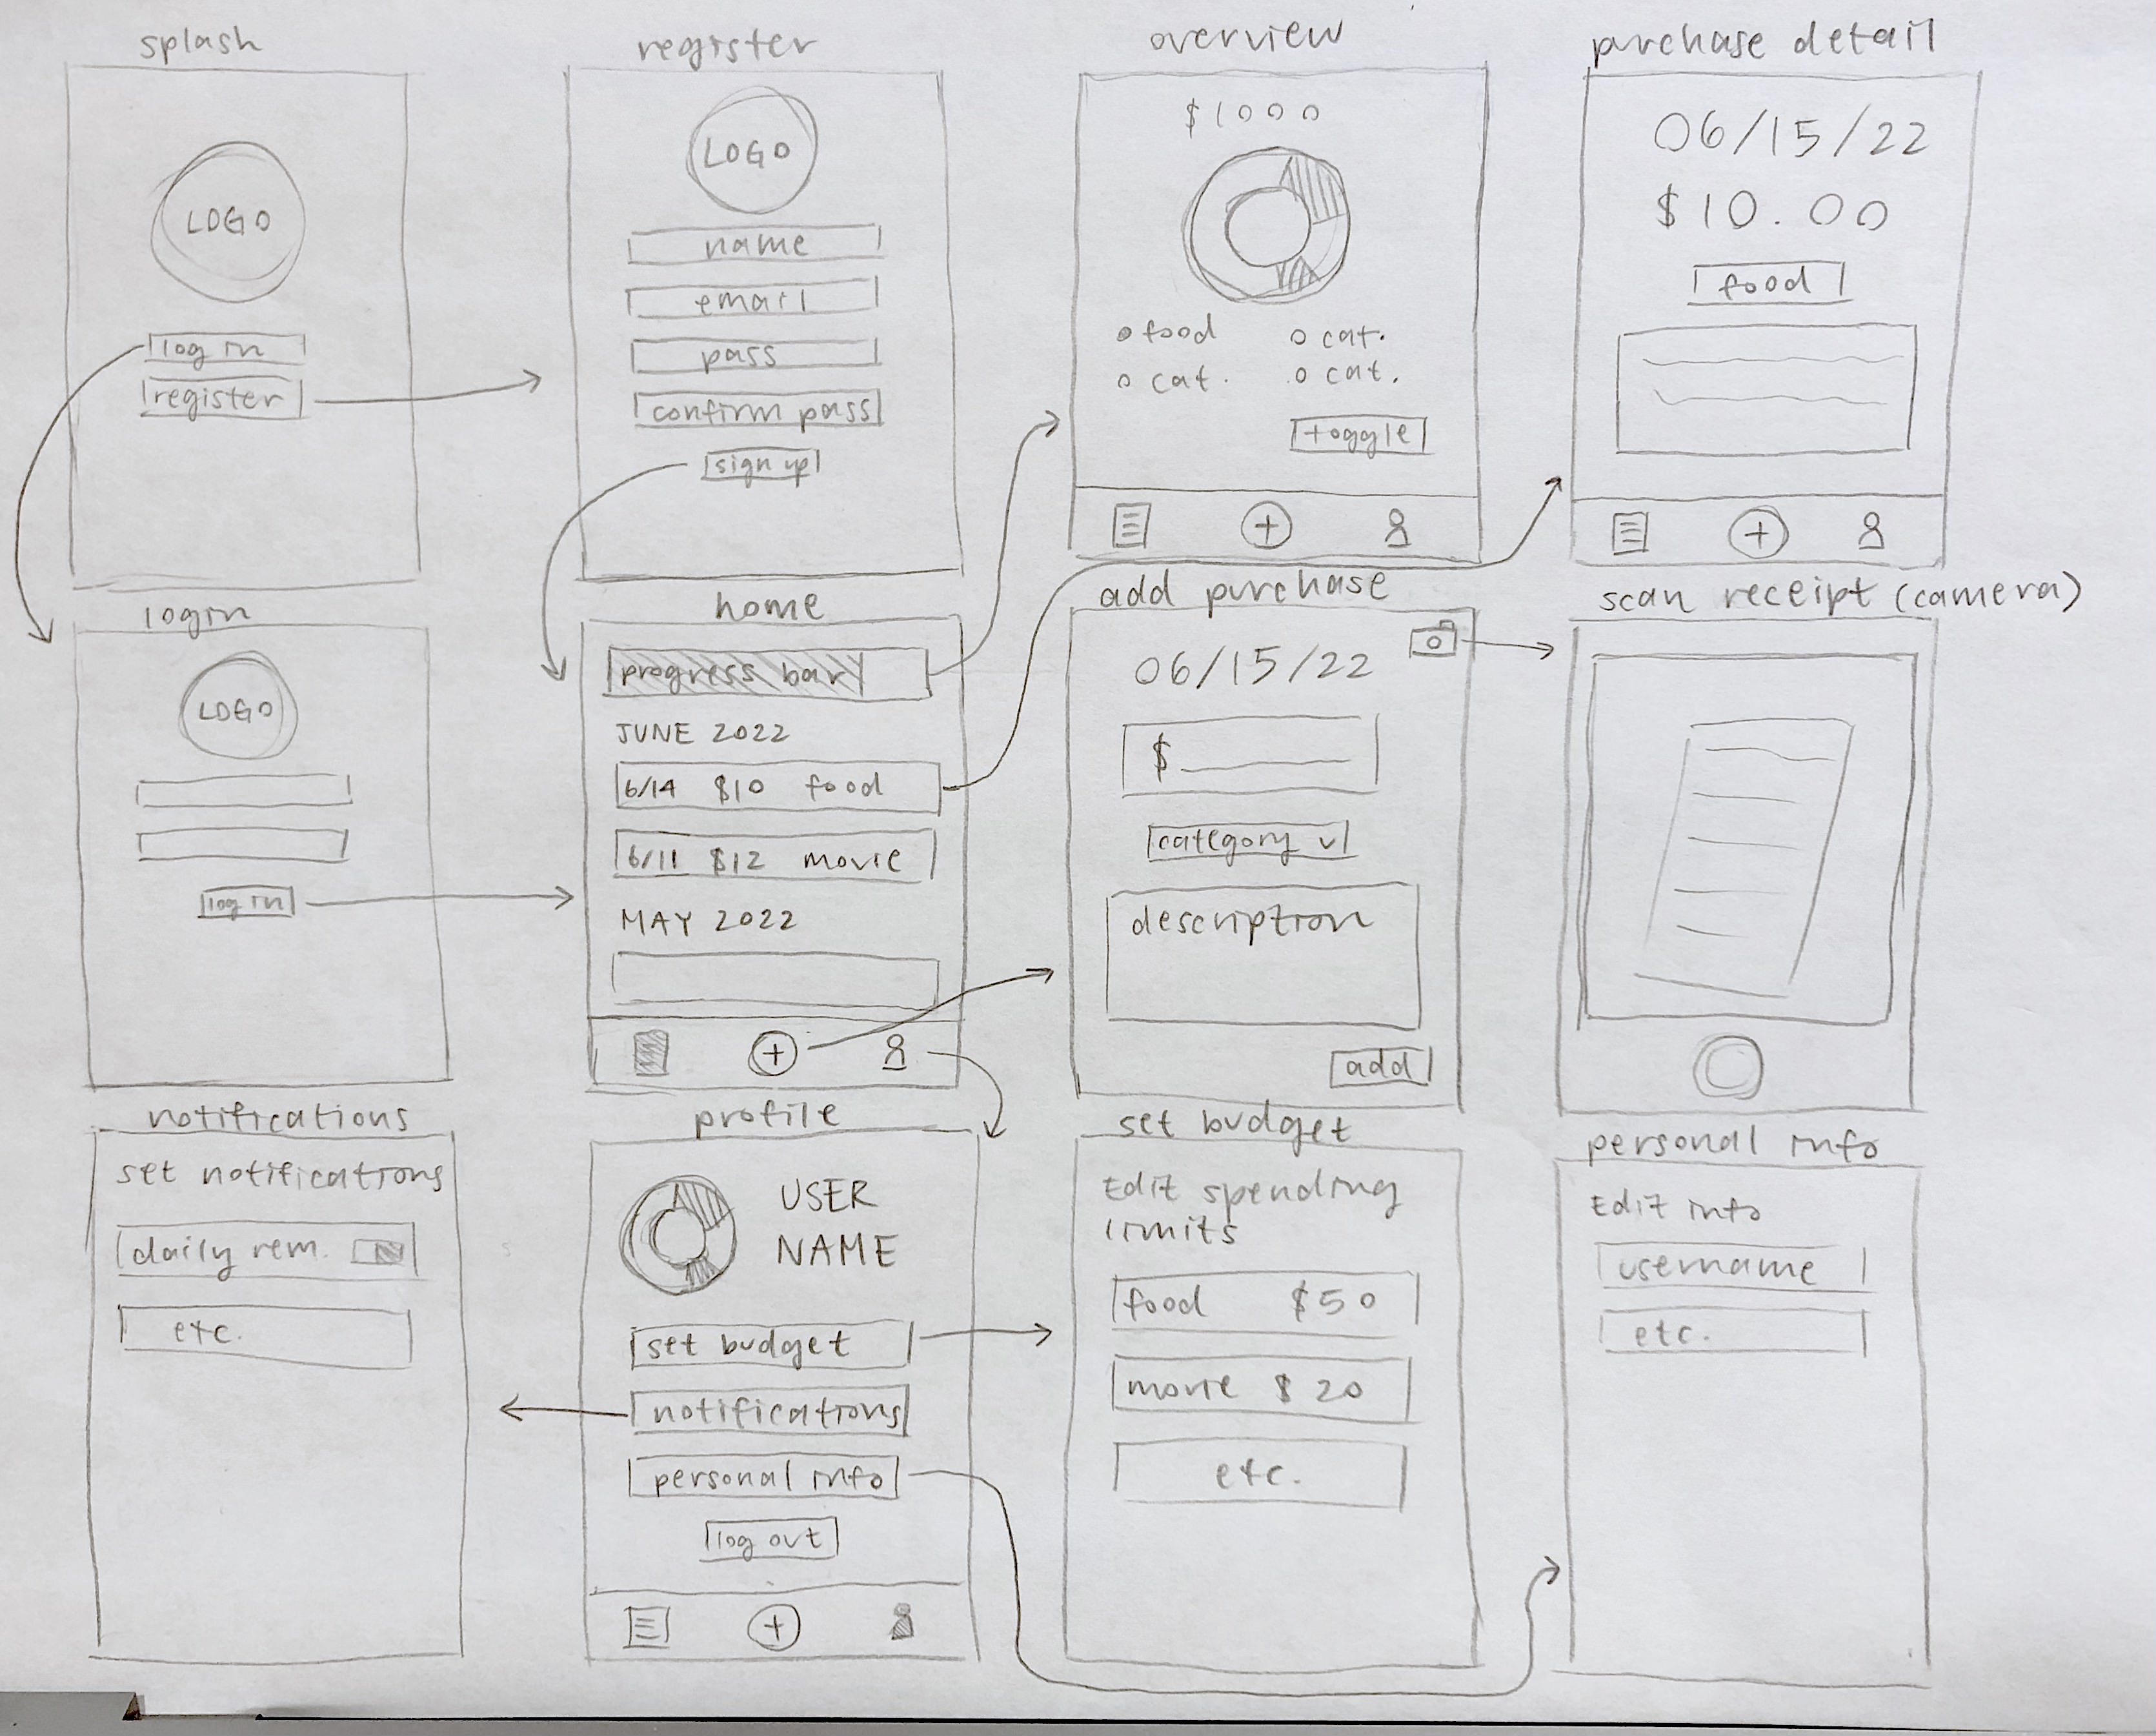 splash
LOGO
log in
register
register
LOGO
name
email
pass
confirm pass
sign up
overview
$1000
food
cat.
cat.
cat.
toggle
purchase detail
06/15/22
$10.00
food
login
LOGO
log in
home
progress bar
JUNE 2022
6/14 $10 food
6/11 $12 movie
MAY 2022
add purchase
06/15/22
$
category
description
add
scan receipt (camera)
notifications
set notifications
daily rem.
etc.
profile
USER
NAME
set budget
notifications
personal info
log out
set budget
Edit spending
limits
food $50
movie $20
etc.
personal info
Edit info
username
etc.